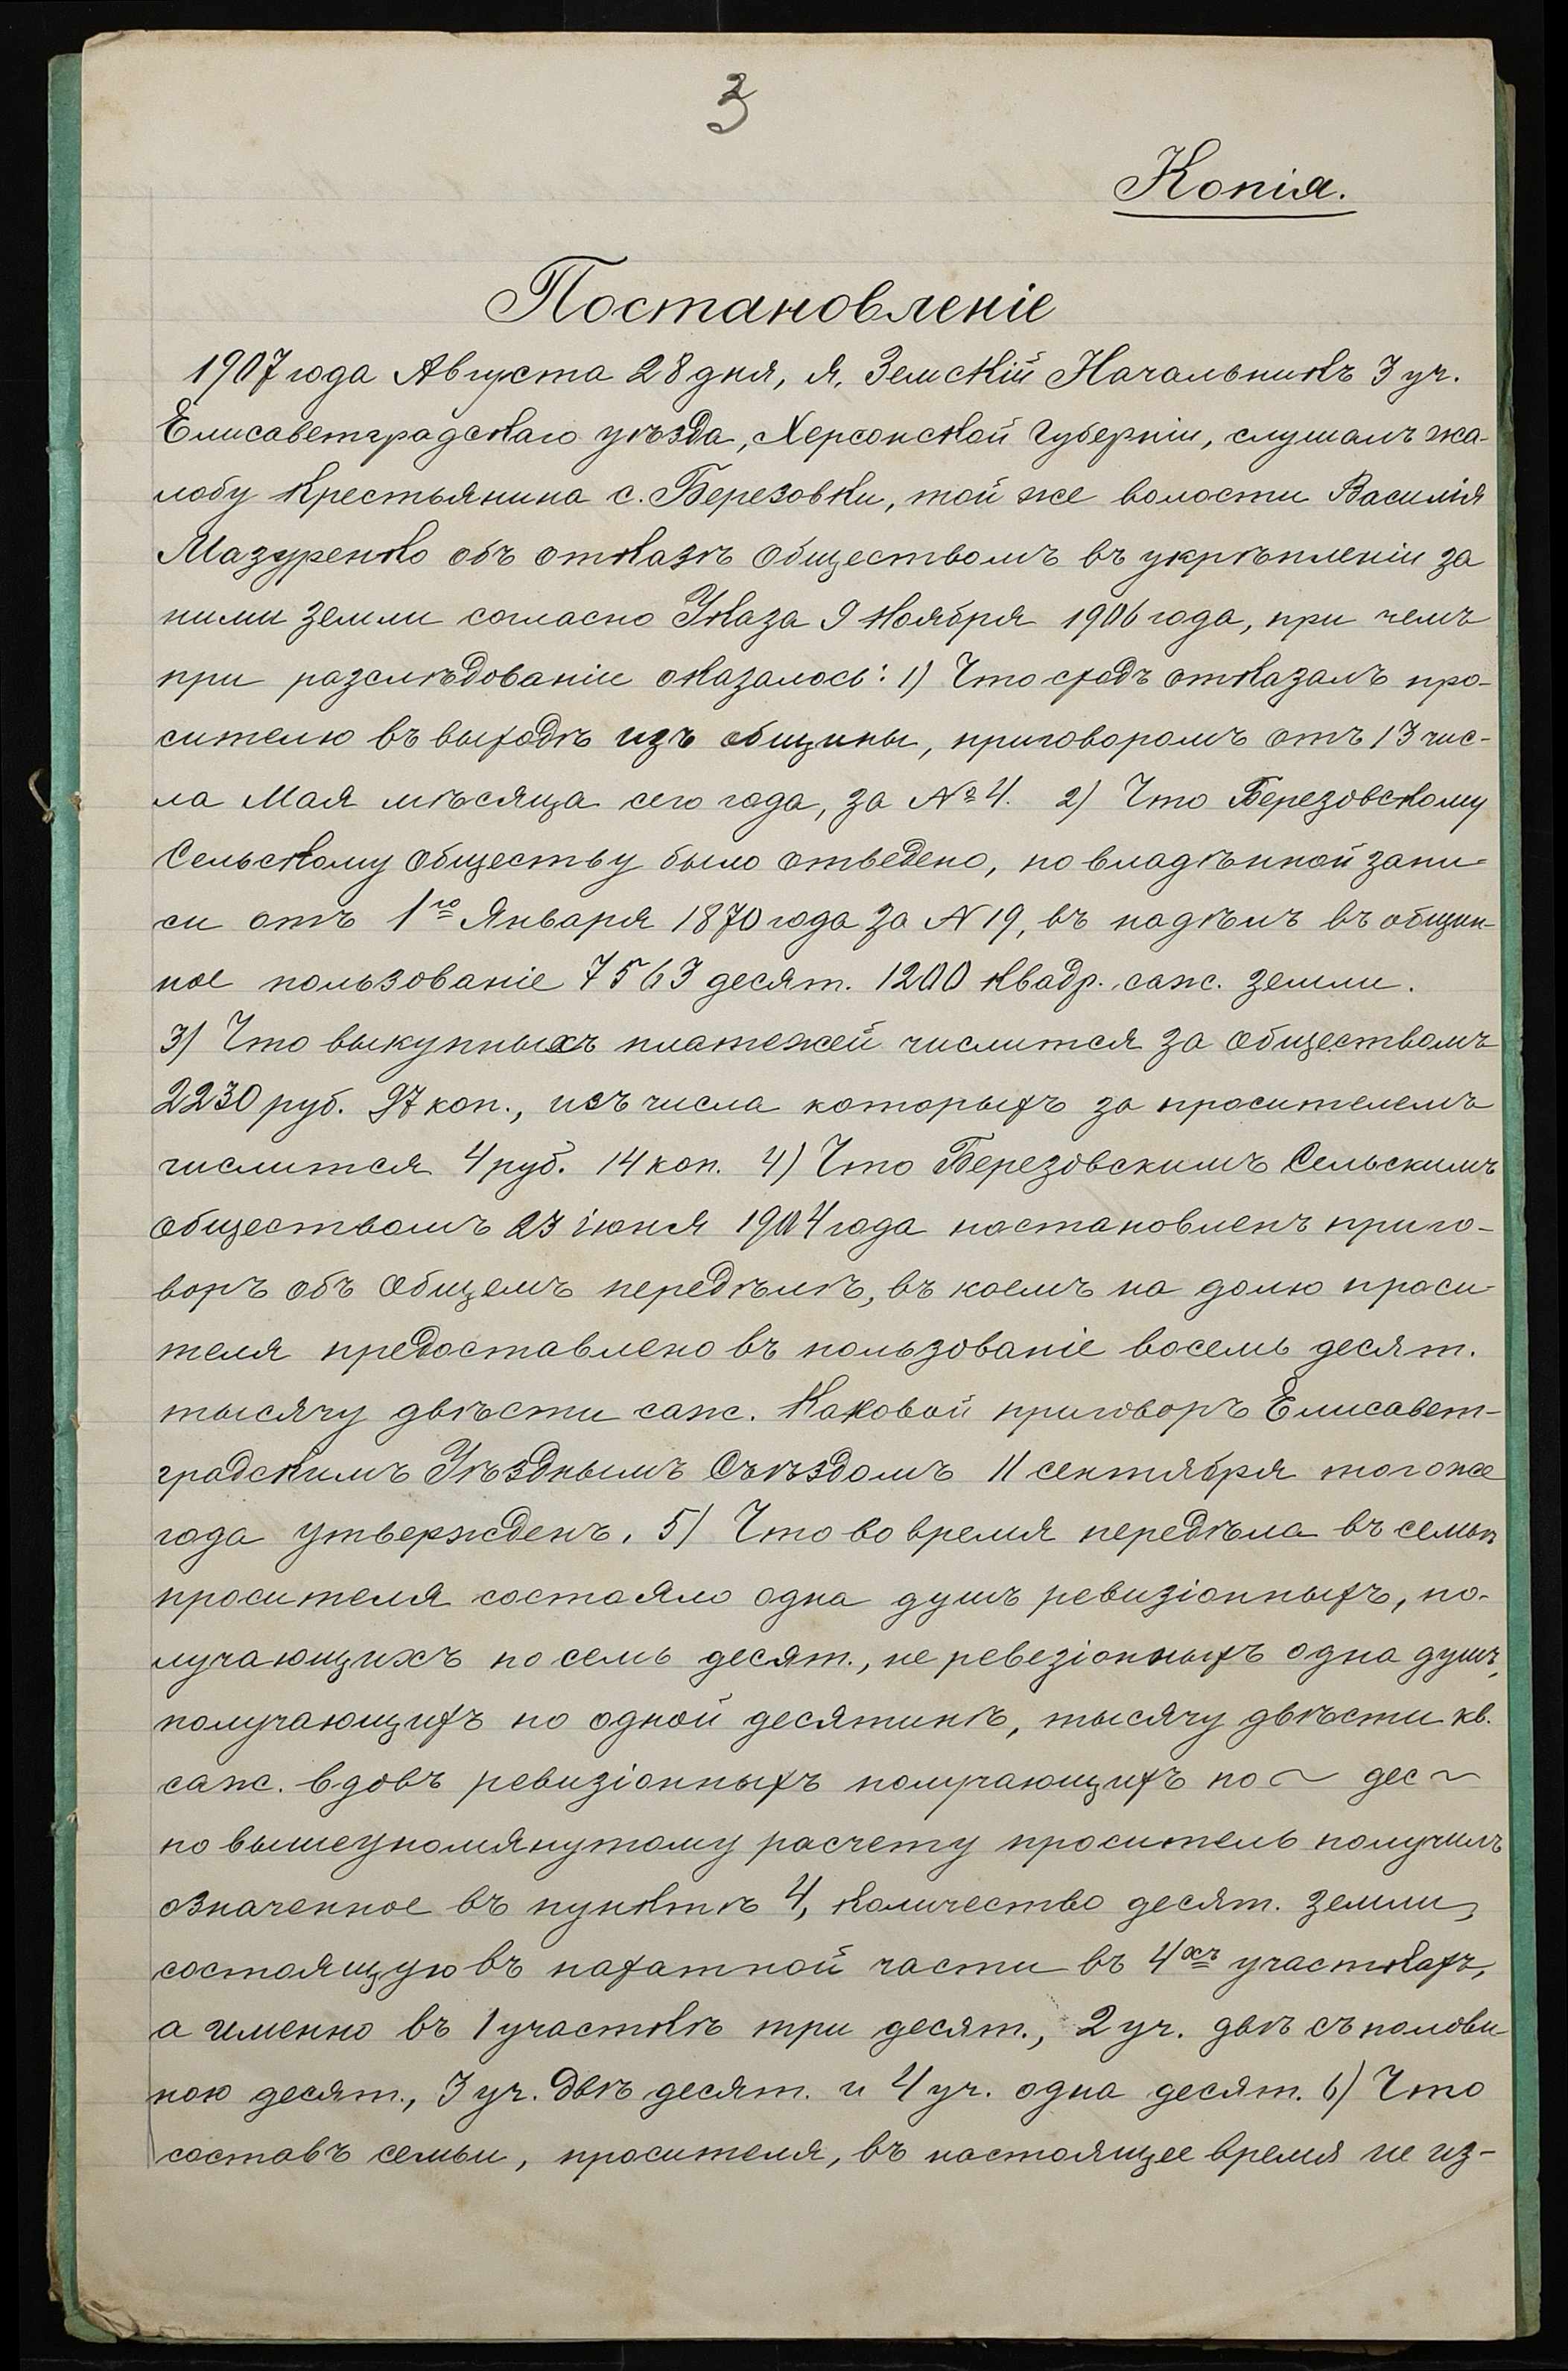 3
Копія.
Постановленіе
1907 года Августа 28 дня, я, Земскій Начальникъ 3 уч.
Елисаветградскаго уѣзда, Херсонской Губерніи, слушалъ жа-
лобу крестьянина с. Березовки, той же волости Василія
Мазуренко объ отказѣ обществомъ въ укрѣпленіи за
ними земли согласно Указа 9 Ноября 1906 года, при чемъ
при разслѣдованіи оказалось: 1) Что сходъ отказалъ про-
сителю въ выходѣ изъ общины, приговоромъ отъ 13 чис-
ла Мая мѣсяца сего года, за № 4. 2) Что Березовскому
Сельскому обществу было отведено, по владѣнной запи-
си отъ 1го Января 1870 года за N 19, въ надѣлъ въ общин-
ное пользованіе 7563 десят. 1200 квадр. саж. земли.
3) Что выкупныхъ платежей числится за обществомъ
2230 руб. 97 коп., изъ числа которыхъ за просителемъ
числится 4 руб. 14 коп. 4) Что Березовскимъ Сельскимъ
обществомъ 23 іюня 1904 года постановленъ приго-
воръ объ общемъ передѣлѣ, въ коемъ на долю проси-
теля предоставлено въ пользованіе восемь десят.
тысячу двѣсти саж. Каковой приговоръ Елисавет-
градскимъ Уѣзднымъ Съѣздомъ 11 сентября того же
года утвержденъ. 5) Что во время передѣла въ семьѣ
просителя состояло одна душъ ревизіонныхъ, по-
лучающихъ по семь десят., не ревезіонныхъ одна душъ,
получающихъ по одной десятинѣ, тысячу двѣсти кв.
саж. вдовъ ревизіонныхъ получающихъ по ~ дес ~
по вышеупомянутому расчету проситель получилъ
означенное въ пунктѣ 4, количество десят. земли,
состоящую въ пахатной части въ 4хъ участкахъ,
а именно въ 1 участкѣ три десят., 2 уч. двѣ съ полови-
ною десят., 3 уч. двѣ десят. и 4 уч. одна десят. 6) Что
составъ семьи, просителя, въ настоящее время не из-